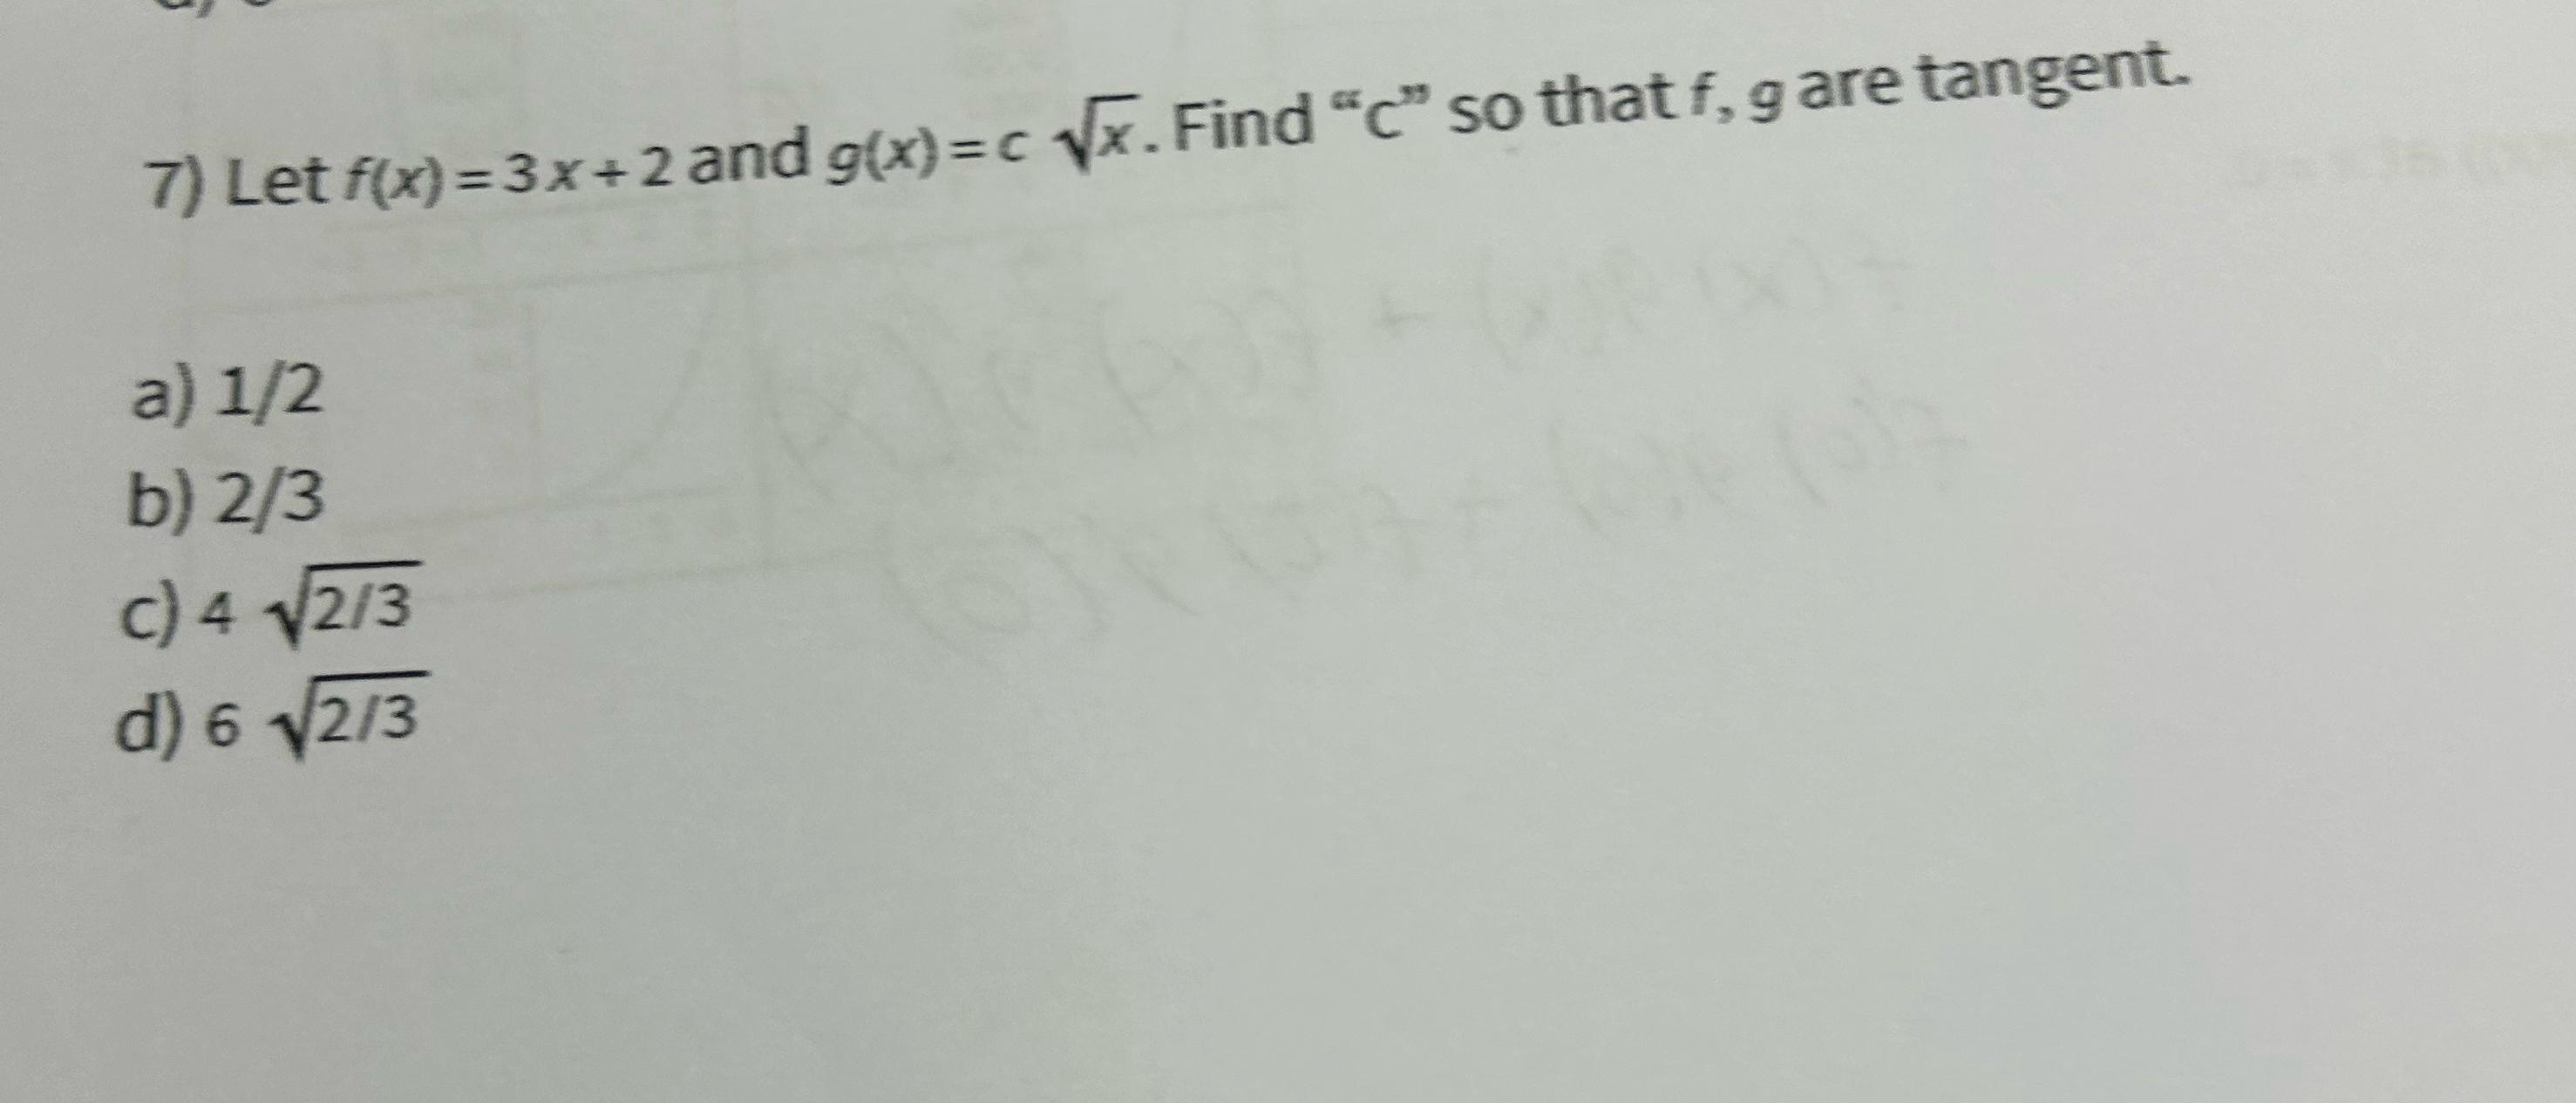 7) Let f(x)=3x+2 and g(x)=c √x. Find “c” so that f, g are tangent.
a) 1/2
b) 2/3
c) 4 √2/3
d) 6 √2/3